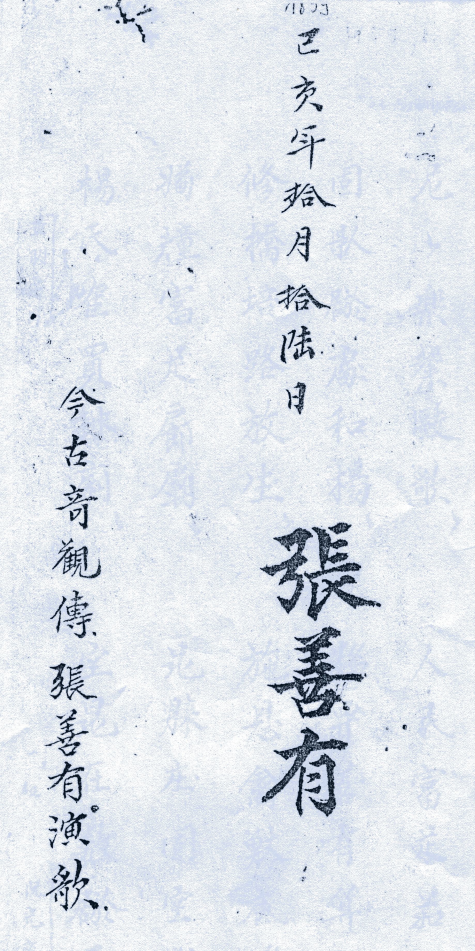 己亥年拾月拾陸日
張善有
今古奇觀傳張善有演歌